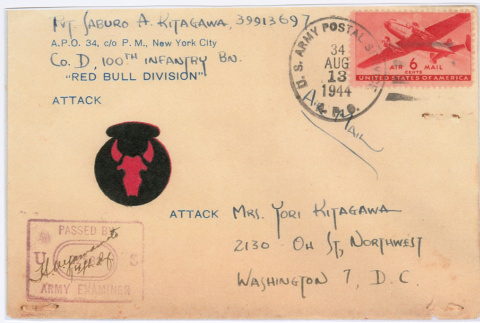 Pvt Saburo A. Kitagawa, 39913697
A.P.O. 34, c/o P. M., New York City
Co. D, 100th Infantry Bn.
"RED BULL DIVISION"
ATTACK
U. S. ARMY POSTAL
34
AUG
13
1944
A. P. O.
Air Mail
AIR 6 MAIL
CENTS
UNITED STATES OF AMERICA
ATTACK
Mrs. Yori Kitagawa
2130 - Oh St, Northwest
Washington 7, D. C.
PASSED BY
U S
ARMY EXAMINER